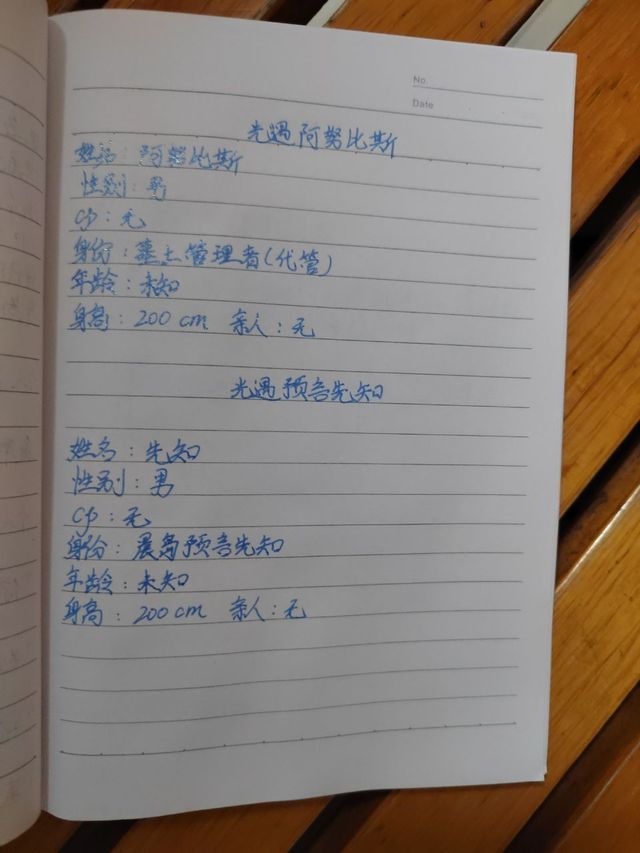 No.
Date
光遇阿努比斯
姓名：阿努比斯
性别：男
cp：无
身份：墓土管理者(代管)
年龄：未知
身高：200 cm 亲人：无
光遇预言先知
姓名：先知
性别：男
cp：无
身份：晨岛预言先知
年龄：未知
身高：200 cm 亲人：无